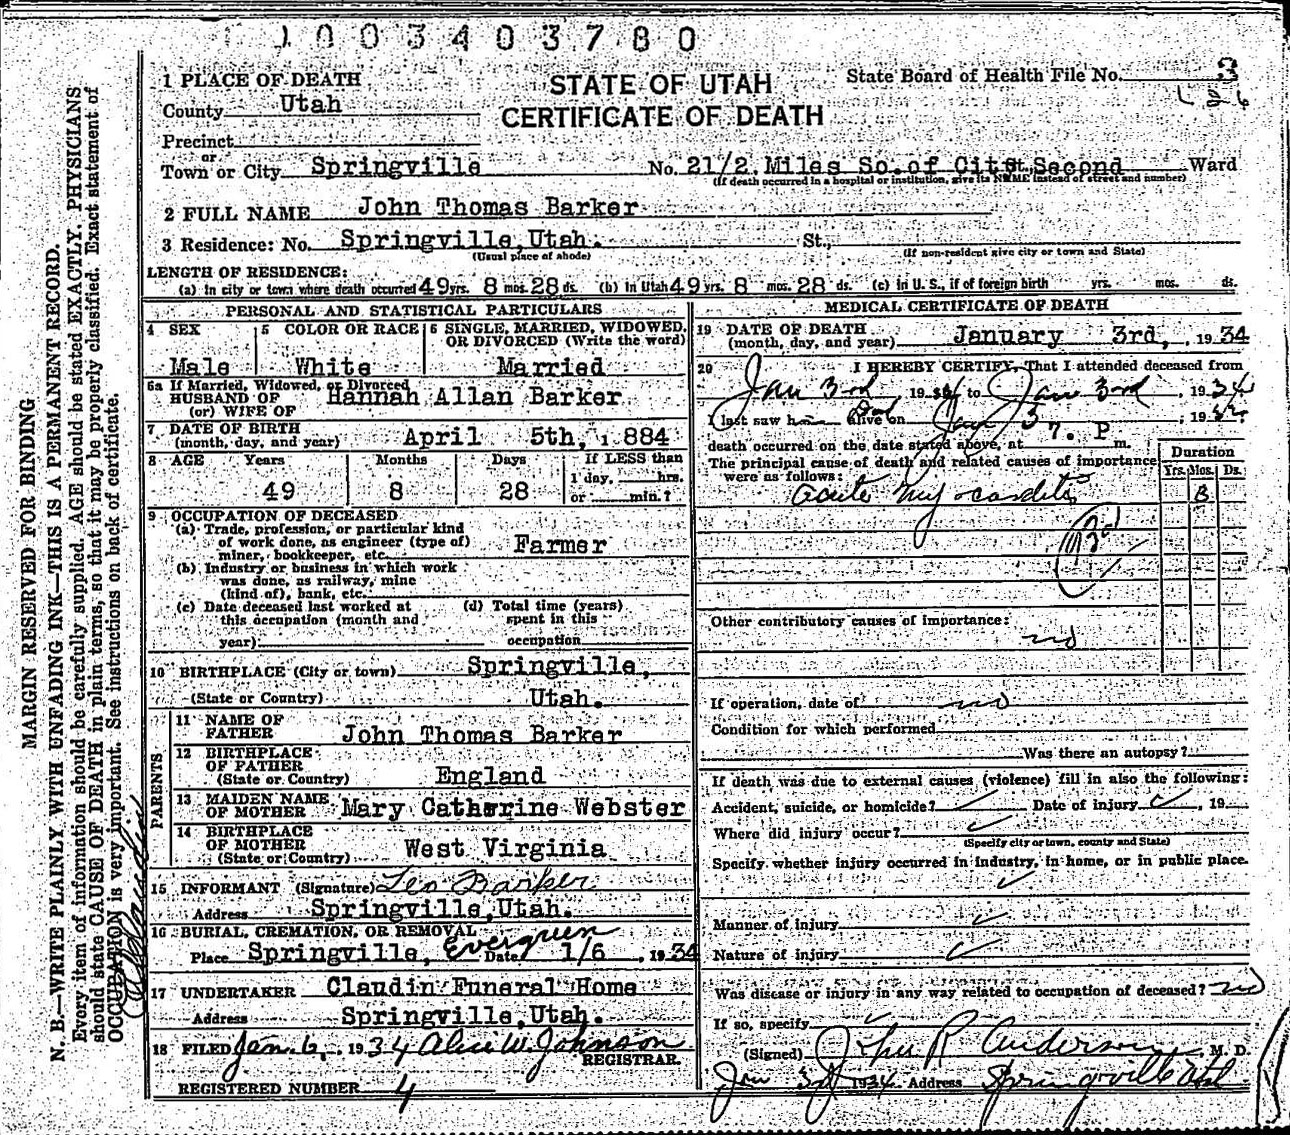 1003403780
1 PLACE OF DEATH
STATE OF UTAH
State Board of Health File No. 3
County Utah
CERTIFICATE OF DEATH
Precinct
or
Town or City Springville No. 21/2 Miles So. of City St., Second Ward
(If death occurred in a hospital or institution, give its NAME instead of street and number)
2 FULL NAME John Thomas Barker
3 Residence: No. Springville, Utah. St.,
(Usual place of abode) (If non-resident give city or town and State)
LENGTH OF RESIDENCE:
(a) In city or town where death occurred 49 yrs. 8 mos. 28 ds. (b) In Utah 49 yrs. 8 mos. 28 ds. (c) In U. S., if of foreign birth yrs. mos. ds.
PERSONAL AND STATISTICAL PARTICULARS
4 SEX
Male
5 COLOR OR RACE
White
6 SINGLE, MARRIED, WIDOWED, OR DIVORCED (Write the word)
Married
6a If Married, Widowed, or Divorced
HUSBAND OF Hannah Allan Barker
(or) WIFE OF
7 DATE OF BIRTH
(month, day, and year) April 5th, 1884
8 AGE Years Months Days If LESS than
1 day, hrs.
49 8 28 or min.?
9 OCCUPATION OF DECEASED
(a) Trade, profession, or particular kind
of work done, as engineer (type of)
miner, bookkeeper, etc. Farmer
(b) Industry or business in which work
was done, as railway, mine
(kind of), bank, etc.
(c) Date deceased last worked at
this occupation (month and
year)
(d) Total time (years)
spent in this
occupation
10 BIRTHPLACE (City or town) Springville,
(State or Country) Utah.
PARENTS
11 NAME OF
FATHER John Thomas Barker
12 BIRTHPLACE
OF FATHER
(State or Country) England
13 MAIDEN NAME
OF MOTHER Mary Catherine Webster
14 BIRTHPLACE
OF MOTHER
(State or Country) West Virginia
15 INFORMANT (Signature) Leo Barker
Address Springville, Utah.
16 BURIAL, CREMATION, OR REMOVAL
Place Springville, Evergreen Date 1/6, 1934
17 UNDERTAKER Claudin Funeral Home
Address Springville, Utah.
18 FILED Jan. 6, 1934 Alice W. Johnson
REGISTRAR.
REGISTERED NUMBER 4
MEDICAL CERTIFICATE OF DEATH
19 DATE OF DEATH
(month, day, and year) January 3rd, , 1934
20 I HEREBY CERTIFY, That I attended deceased from
Jan 3rd 1934 to Jan 3rd, 1934
I last saw him alive on Dead Jan 3, 1934
death occurred on the date stated above, at 7. P m.
The principal cause of death and related causes of importance
were as follows:
Duration
Yrs. Mos. Ds.
acute myocarditis
Other contributory causes of importance:
no
If operation, date of no
Condition for which performed
Was there an autopsy?
If death was due to external causes (violence) fill in also the following:
Accident, suicide, or homicide? Date of injury , 19
Where did injury occur?
(Specify city or town, county and State)
Specify whether injury occurred in industry, in home, or in public place.
Manner of injury
Nature of injury
Was disease or injury in any way related to occupation of deceased? no
If so, specify
(Signed) John R Anderson, M. D.
Jan 3rd 1934 Address Springville Utah
MARGIN RESERVED FOR BINDING
N. B.—WRITE PLAINLY WITH UNFADING INK—THIS IS A PERMANENT RECORD.
Every item of information should be carefully supplied. AGE should be stated EXACTLY. PHYSICIANS
should state CAUSE OF DEATH in plain terms, so that it may be properly classified. Exact statement of
OCCUPATION is very important. See instructions on back of certificate.